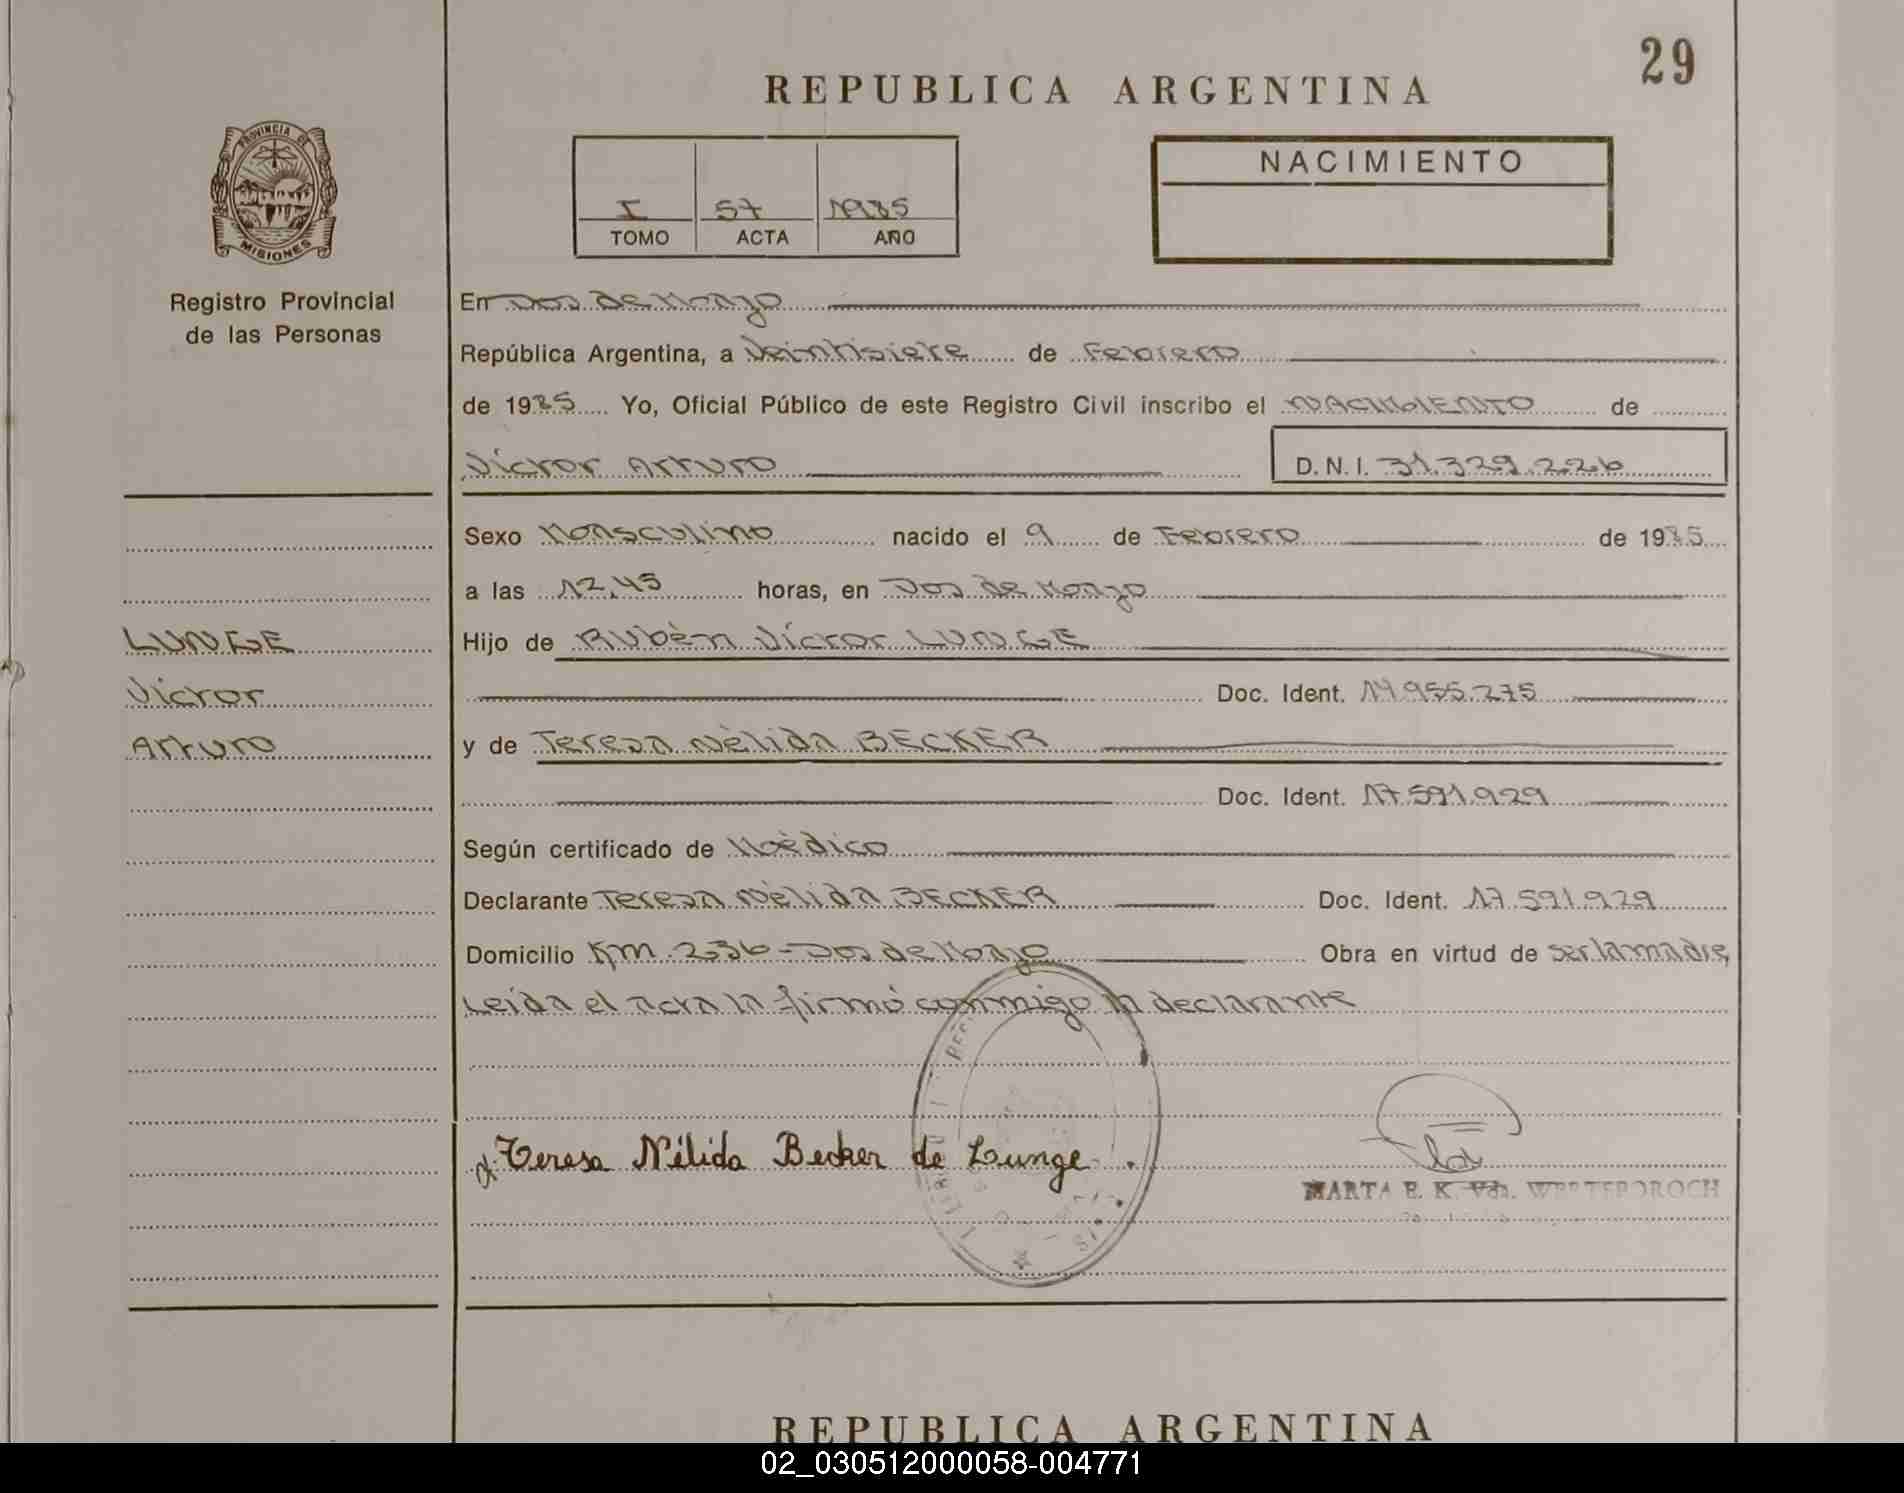 29
REPUBLICA ARGENTINA
PROVINCIA DE
MISIONES
Registro Provincial
de las Personas
I 57 1985
TOMO ACTA AÑO
NACIMIENTO
En Dos de Mayo
República Argentina, a Veintisiete de Febrero
de 1985 Yo, Oficial Público de este Registro Civil inscribo el NACIMIENTO de
Víctor Arturo D.N.I. 31.329.226
Sexo Masculino nacido el 9 de Febrero de 1985
a las 12,45 horas, en Dos de Mayo
LUNGE
Hijo de Rubèn Víctor LUNGE
Víctor
Doc. Ident. 14.955.275
Arturo
y de Teresa Nèlida BECKER
Doc. Ident. 17.591.929
Según certificado de Mèdico
Declarante Teresa Nèlida BECKER Doc. Ident. 17.591.929
Domicilio Km. 236-Dos de Mayo Obra en virtud de ser la madre,
Leída el acta la firmó conmigo la declarante
Teresa Nélida Becker de Lunge.
MARTA E. K. Vda.
REPUBLICA ARGENTINA
02_030512000058-004771